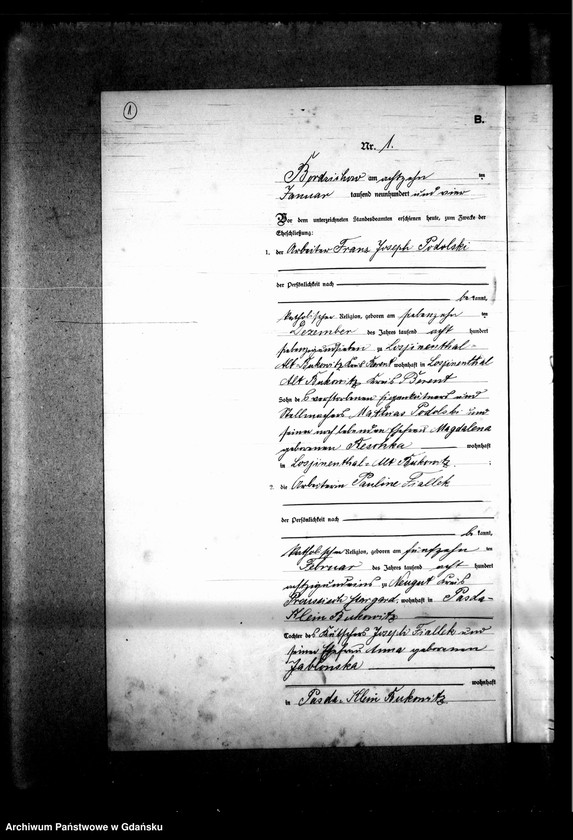 1
B.
Nr. 1.
Bordzichow am achtzehn ten
Januar tausend neunhundert und vier
Vor dem unterzeichneten Standesbeamten erschienen heute, zum Zwecke der
Eheschließung:
1. der Arbeiter Franz Joseph Podolski
der Persönlichkeit nach
be kannt,
katholischer Religion, geboren am siebenzehn ten
Dezember des Jahres tausend acht hundert
siebenzigundsieben zu
Alt Bukowitz Kreis Berent wohnhaft in
Alt Bukowitz Kreis Berent
Sohn des verstorbenen Eigenkätners und
Stellmachers Mathias Podolski und
seiner noch lebenden Ehefrau Magdalena
geborenen Reschka wohnhaft
in Alt Bukowitz ;
2. die Arbeiterin Pauline Fiallek
der Persönlichkeit nach
be kannt,
katholischer Religion, geboren am fünfzehn ten
Februar des Jahres tausend acht hundert
achtzigundeins zu Neugut Kreis
Preussisch Stargard, wohnhaft in Pasda-
Klein Bukowitz
Tochter des Kutschers Joseph Fiallek und
seiner Ehefrau Anna geborenen
Jablonska
wohnhaft
in Pasda-Klein Bukowitz.
Archiwum Państwowe w Gdańsku